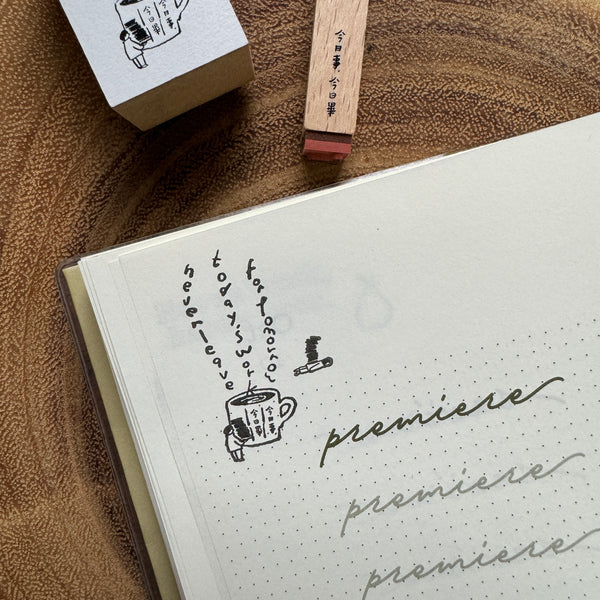 今日事
今日畢
今日事，今日畢
never leave
today's work
for tomorrow
今日事
今日畢
premiere
premiere
premiere